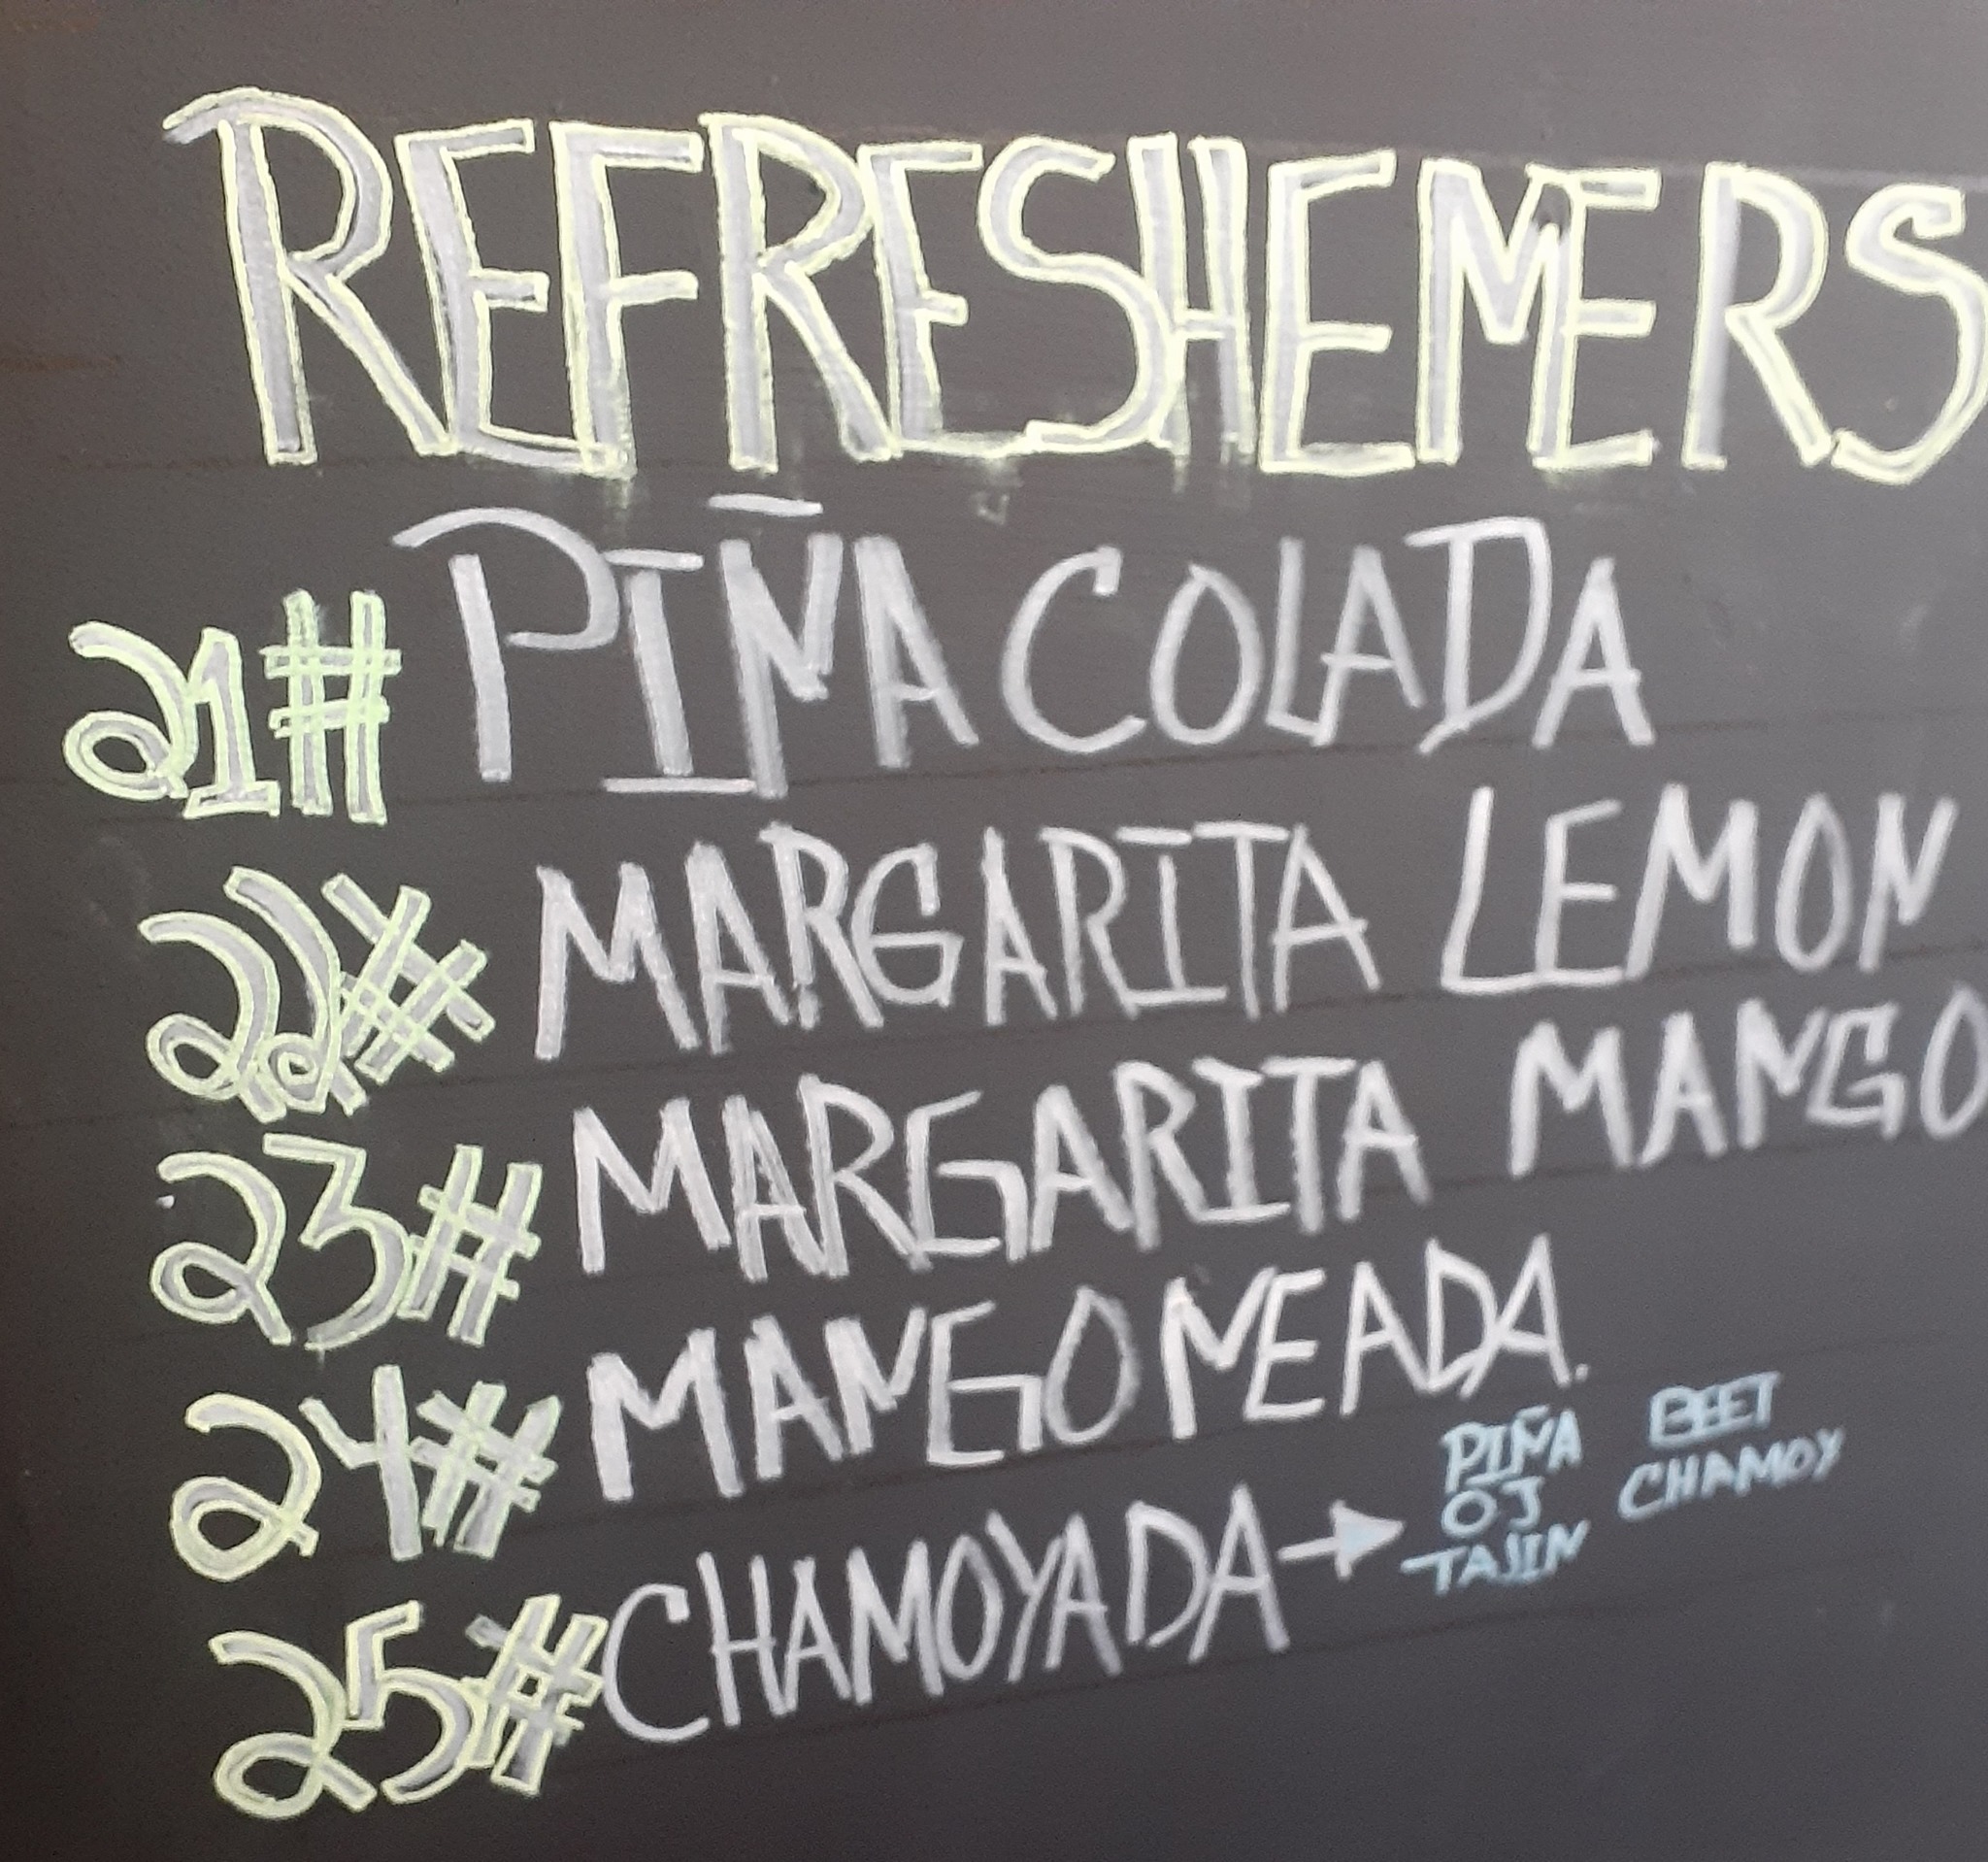 REFRESHEMERS
21# PIÑA COLADA
22# MARGARITA LEMON
23# MARGARITA MANGO
24# MANGONEADA.
25# CHAMOYADA → PIÑA BEET
OJ CHAMOY
TAJIN